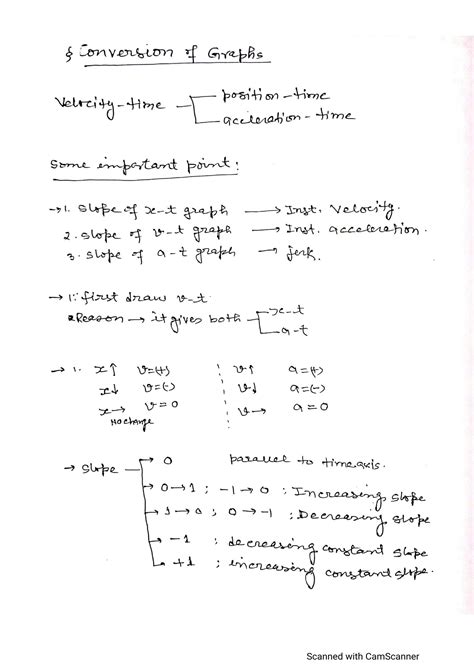 § Conversion of Graphs
Velocity-time position-time
acceleration-time
Some important point:
→1. Slope of x-t graph → Inst. Velocity.
2. slope of v-t graph → Inst. acceleration.
3. slope of a-t graph → jerk.
→ 1: first draw v-t.
2Reason → it gives both x-t
a-t
→ 1. x↑ v=(+) v↑ a=(+)
x↓ v=(-) v↓ a=(-)
x→ v=0 v→ a=0
No change
→ slope → 0 parallel to time axis.
→ 0→1 ; -1→0 : Increasing slope
→ 1→0 ; 0→-1 : Decreasing slope
→ -1 : decreasing constant slope
→ +1 ; increasing constant slope.
Scanned with CamScanner